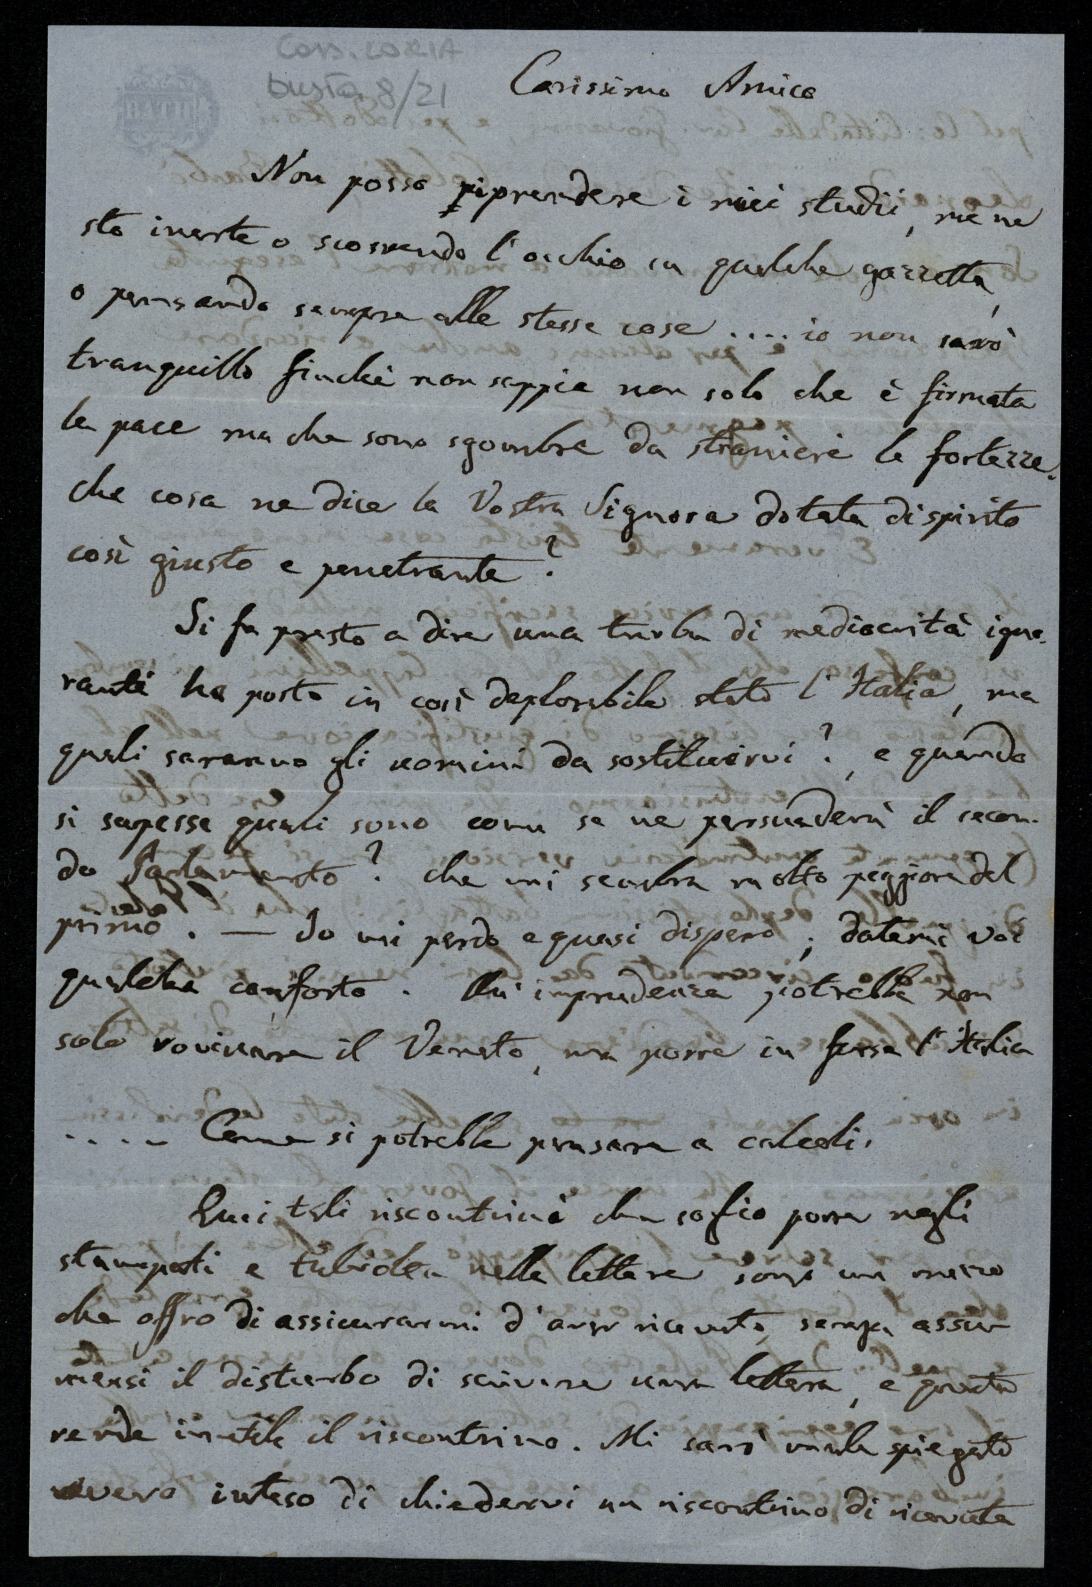 Corr. LORIA
busta 8/21
Carissimo Amico
Non posso riprendere i miei studii, me ne
sto inerte o scorrendo l'occhio su qualche gazzetta,
o pensando sempre alle stesse cose .... io non sarò
tranquillo finchè non seppia non solo che è firmata
la pace ma che sono sgombre da stranieri le fortezze.
che cosa ne dice la Vostra Signora dotata di spirito
così giusto e penetrante?
Si fa presto a dire una turba di mediocrità igno-
ranti ha posto in così deplorabile stato l'Italia, ma
quali saranno gli uomini da sostituirvi?, e quando
si sapesse quali sono come se ne persuaderà il secon-
do Parlamento? che mi sembra molto peggiore del
primo. — Io mi perdo e quasi dispero; datemi voi
qualche conforto. Un'imprudenza potrebbe non
solo rovinare il Veneto, ma porre in forse l'Italia
..... Come si potrebbe pensare a calcoli.
Quei tali riscontrini che soglio porre negli
stampati e talvolta nelle lettere sono un mezzo
che offro di assicurarmi d'aver ricevuto senza assu-
mersi il disturbo di scrivere una lettera, e questa
rende inutile il riscontrino. Mi sarò male spiegato
avevo inteso di chiedervi un riscontrino di ricevuta